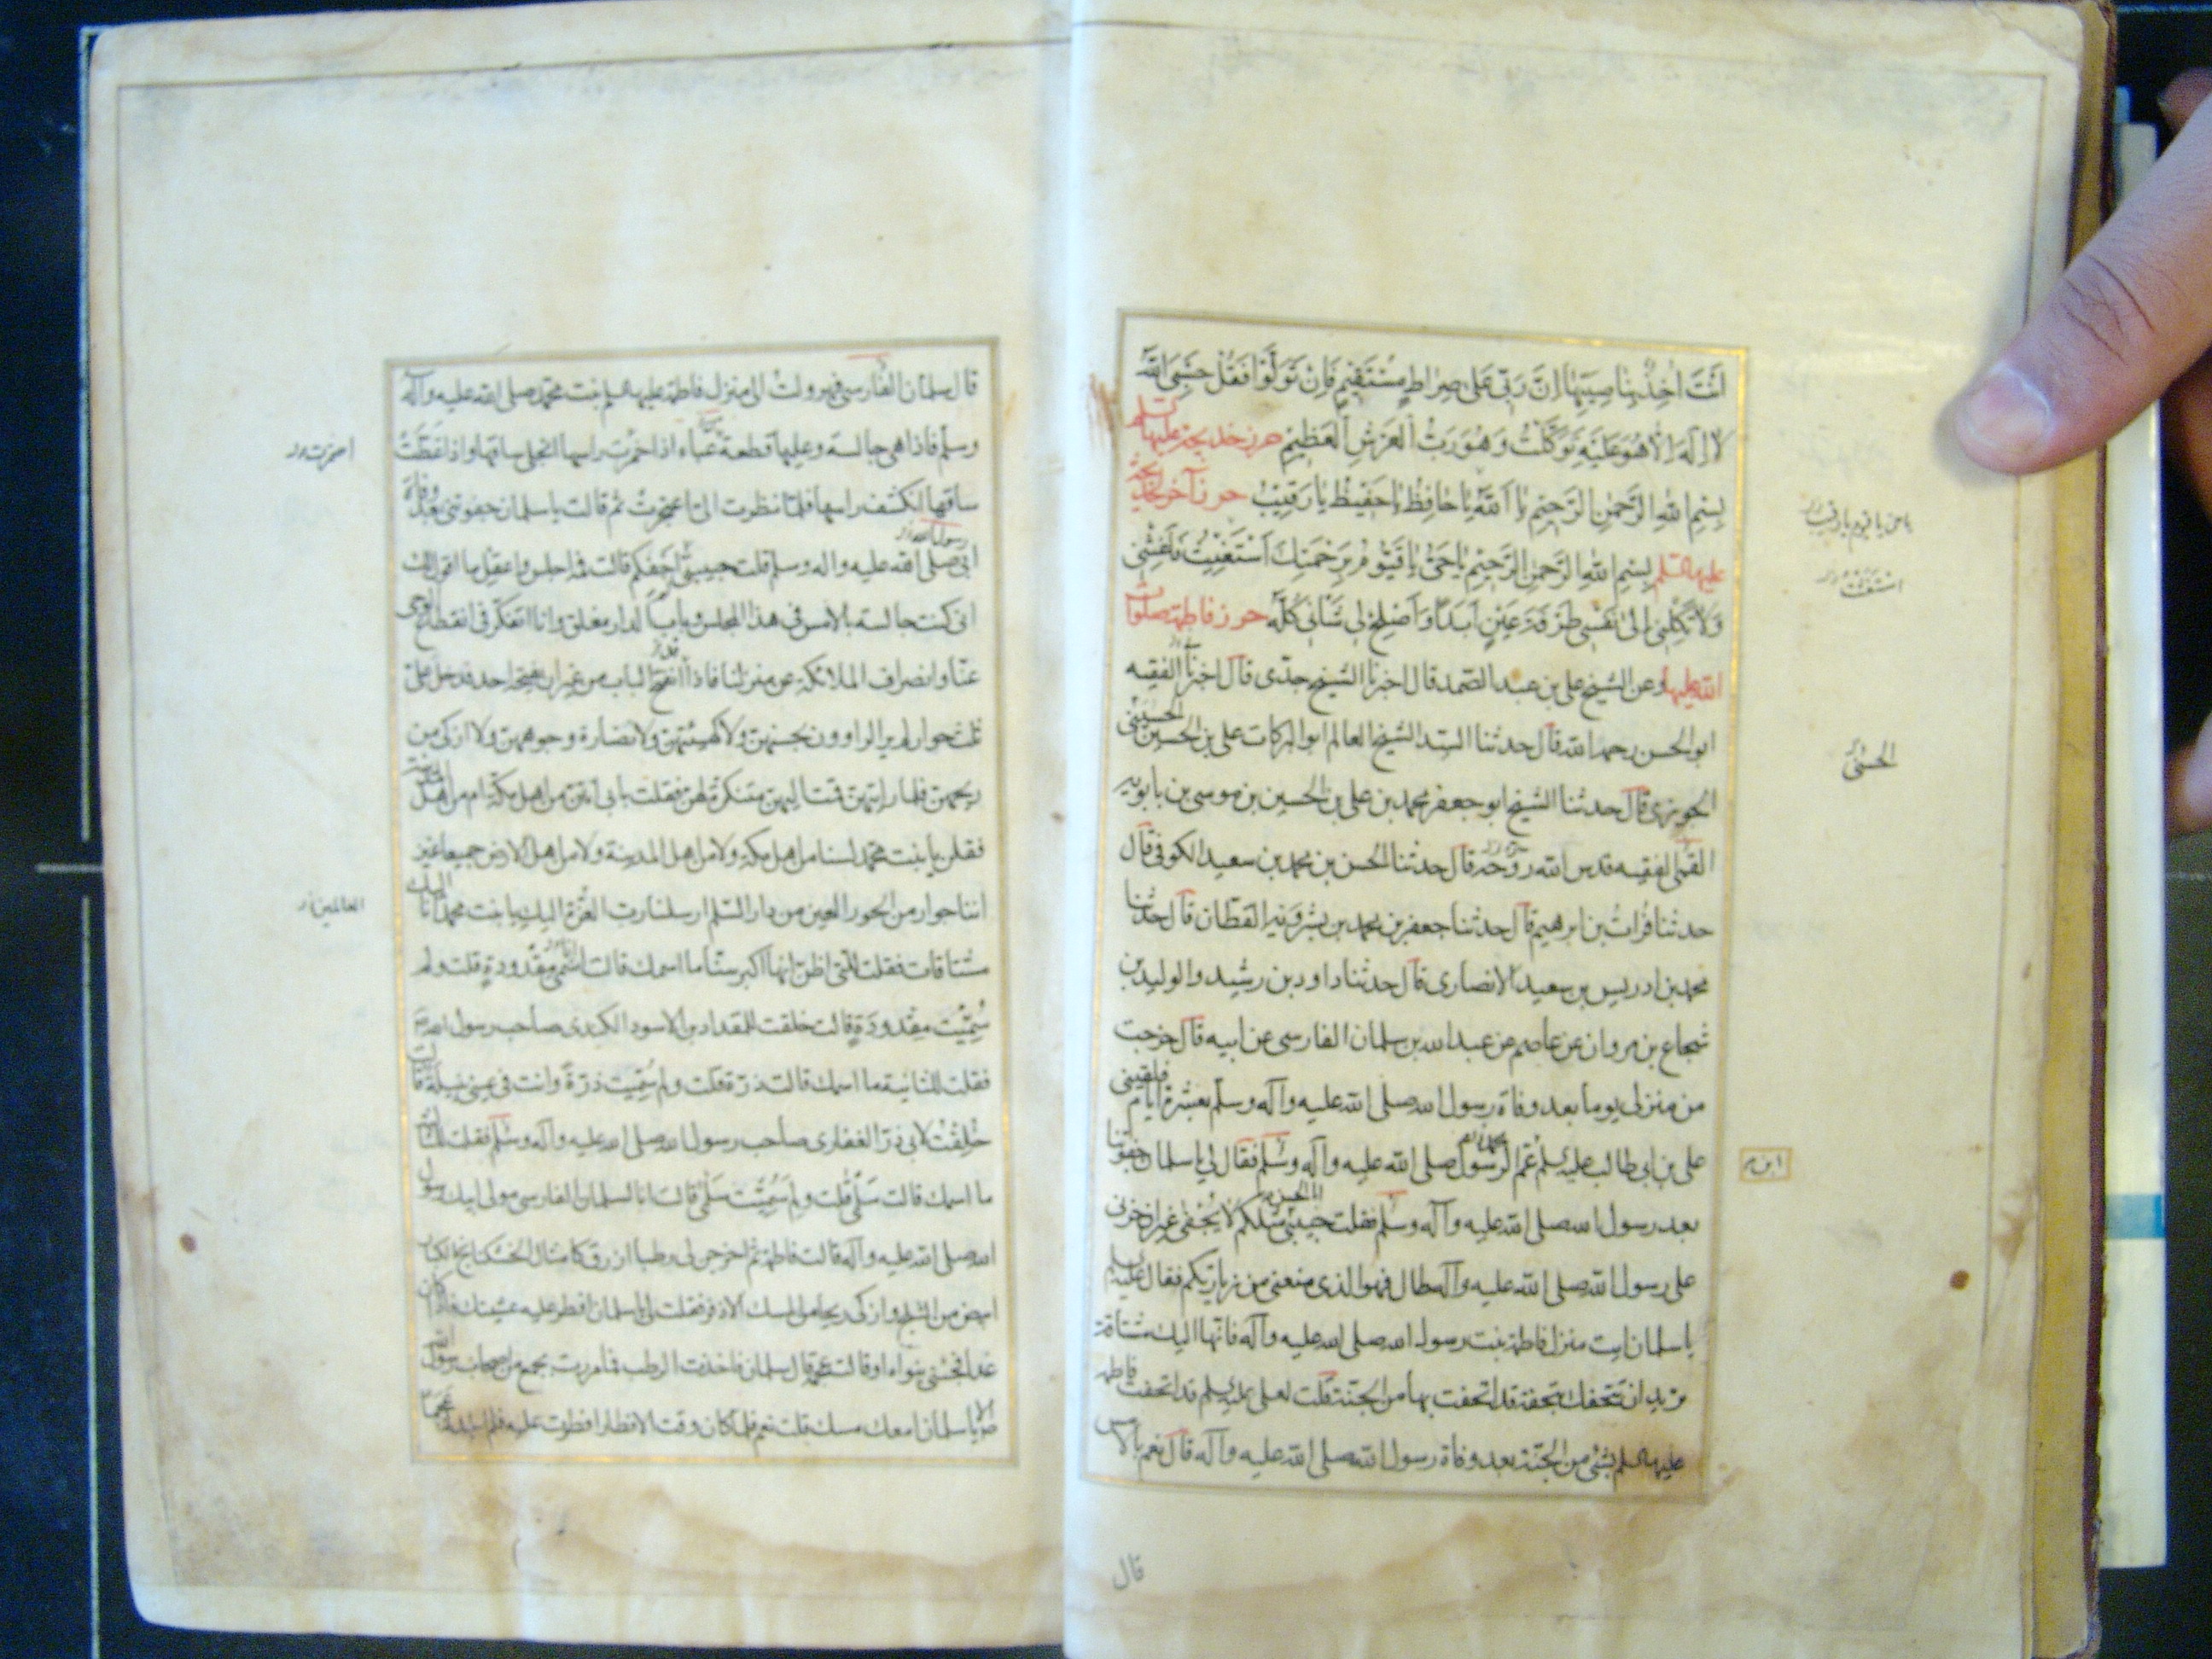 اَنْتَ اٰخِذٌ بِنٰاصِيَتِهٰا اِنَّ رَبّى عَلىٰ صِرٰاطٍ مُسْتَقيٖمٍ فَاِنْ تَوَلَّوْا فَقُلْ حَسْبِىَ اللّٰهُ
لاٰ اِلٰهَ اِلاّٰ هُوَ عَلَيْهِ تَوَكَّلْتُ وَهُوَ رَبُّ الْعَرْشِ الْعَظيٖمِ حرز خديجة عليها السلم
بِسْمِ اللّٰهِ الرَّحْمٰنِ الرَّحيٖمِ يٰا اَللّٰهُ يٰا حٰافِظُ يٰا حَفيٖظُ يٰا رَقيٖبُ حرز آخر لخديجة
عليها السلم بِسْمِ اللّٰهِ الرَّحْمٰنِ الرَّحيٖمِ يٰا حَىُّ يٰا قَيُّومُ بِرَحْمَتِكَ اَسْتَغيٖثُ فَاَغِثْنى
وَلاٰ تَكِلْنى اِلىٰ نَفْسى طَرْفَةَ عَيْنٍ اَبَداً وَاَصْلِحْ لى شَأْنى كُلَّهُ حرز فاطمة صلوات
الله عليها وعن الشيخ على بن عبد الصمد قال اخبرنا الشيخ جدّى قال اخبرنا الفقيه
ابو الحسن رحمه الله قال حدثنا السيّد الشيخ العالم ابو البركات على بن الحسين الحسينى
الجوزى قال حدثنا الشيخ ابو جعفر محمد بن على بن الحسين بن موسى بن بابويه
القمى الفقيه قدس الله روحه قال حدثنا الحسن بن محمد بن سعيد الكوفى قال
حدثنا فرات بن ابرهيم قال حدثنا جعفر بن محمد بن بشرويه القطّان قال حدثنا
محمد بن ادريس بن سعيد الانصارى قال حدثنا داود بن رشيد والوليد بن
شجاع بن مروان عن عاصم عن عبد الله بن سلمان الفارسى عن ابيه قال خرجت
من منزلى يوما بعد وفاة رسول الله صلى الله عليه وآله وسلم بعشرة ايام فلقينى
على بن ابى طالب عليه السلم ابن عم الرسول صلى الله عليه وآله وسلم فقال لى يا سلمان جفوتنا
بعد رسول الله صلى الله عليه وآله وسلم فقلت حبيبى مثلكم لا يجفى غير ان حزنى
على رسول الله صلى الله عليه وآله طال فهو الذى منعنى من زيارتكم فقال عليه السلم
يا سلمان ايت منزل فاطمة بنت رسول الله صلى الله عليه وآله فانّها اليك مشتاقة
تريد ان تتحفك بتحفة قد اتحفت بها من الجنّة قلت لعلى عليه السلم قد اتحفت فاطمة
عليها السلم بشىء من الجنّة بعد وفاة رسول الله صلى الله عليه وآله قال نعم بالامس
الحسنى
ابن
قال
قال سلمان الفارسى فهرولت الى منزل فاطمة عليها السلم بنت محمّد صلى الله عليه وآله
وسلم فاذا هى جالسة وعليها قطعة عباء اذا خمّرت راسها انجلى ساقها واذا غطّت
ساقها انكشف راسها فلمّا نظرت الىّ اعتجرت ثم قالت يا سلمان جفوتنى بعد وفاة
ابى صلى الله عليه واله وسلم قلت حبيبتى أجفكم قالت فمه اجلس واعقل ما اقول لك
انى كنت جالسة بالامس فى هذا المجلس وباب الدار مغلق وانا اتفكّر فى انقطاع الوحى
عنّا وانصراف الملائكة عن منزلنا فاذا انفتح الباب من غير ان يفتحه احد فدخل علىّ
ثلث جوار لم ير الراوون بحسنهنّ ولا كهيئتهنّ ولا نضارة وجوههنّ ولا ازكى من
ريحهنّ فلما رايتهنّ قمت اليهنّ متنكرة لهنّ فقلت بابى انتنّ من اهل مكة ام من اهل المدينة
فقلن يا بنت محمّد لسنا من اهل مكة ولا من اهل المدينة ولا من اهل الارض جميعا غير
اننا جوار من الحور العين من دار السّلم ارسلنا ربّ العزّة اليك يا بنت محمد انّا اليك
مشتاقات فقلت للّتى اظن انها اكبر سنّا ما اسمك قالت اسمى مقدودة قلت ولم
سمّيت مقدودة قالت خلقت للمقداد بن الاسود الكندى صاحب رسول الله
فقلت للثانية ما اسمك قالت ذرّة قلت ولم سمّيت ذرّة وانت فى عينى نبيلة قالت
خلقت لابى ذرّ الغفارى صاحب رسول الله صلى الله عليه وآله وسلم فقلت للثالثة
ما اسمك قالت سلمى قلت ولم سمّيت سلمى قالت انا لسلمان الفارسى مولى ابيك رسول
الله صلى الله عليه وآله قالت فاطمة ثم اخرجن لى رطبا ازرق كامثال الخشكنانج الكبار
ابيض من الثلج وازكى ريحا من المسك الاذفر فقلت لى يا سلمان افطر عليه عشيتك فاذا كان
غدا فجئنى بنواه او قالت عجمه قال سلمان فاخذت الرطب فما مررت بجمع من اصحاب رسول الله
الا قالوا يا سلمان امعك مسك قلت نعم فلما كان وقت الافطار افطرت عليه فلم اجد له عجما
العالمين